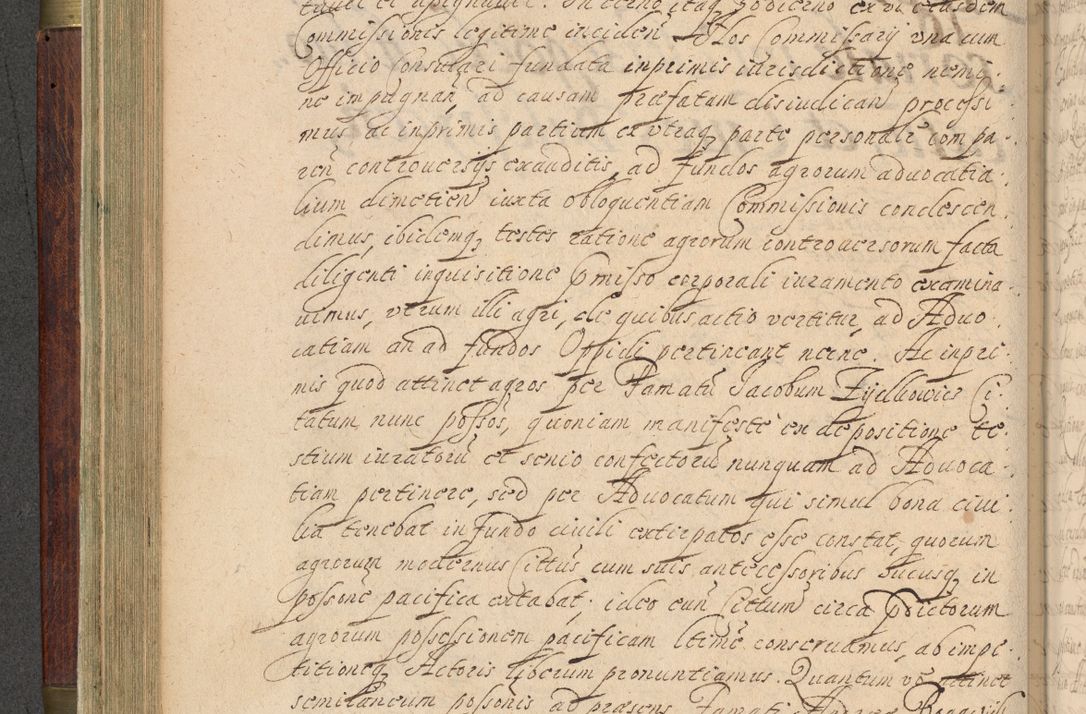 Commissionis legitime inciden Nos Commissarij una cum
Officio Consulari fundata inprimis iurisdictione nemi-
ne impugnan, ad causam præfatam disiudican processi-
mus, ac inprimis partium ex utraq parte personalr compa-
ren controversijs exauditis, ad fundos agrorum aduocatia-
lium dimetien iuxta obloquentiam Commissionis condescen-
dimus, ibidemq testes ratione agrorum controuersorum facta
diligenti inquisitione pmisso corporali iuramento examina-
uimus, utrum illi agri, de quibus actio vertitur, ad Aduo-
catiam an ad fundos Oppidi pertineant necne. Ac inpri-
mis quod attinet agros per Famatu Jacobum Zyelkowicz Ci-
tatum nunc possos, quoniam manifeste ex depositione te-
stium iuratoru et senio confectoru nunquam ad Aduoca-
tiam pertinere, sed per Aduocatum qui simul bona ciui-
lia tenebat in fundo ciuili extirpatos esse constat, quorum
agrorum modernus Cittus cum suis antecessoribus hucusq in
possone pacifica extabat; ideo eun Cittum circa pdictorum
agrorum possessionem pacificam ltime conseruamus, ab impe-
titioneq Actoris liberum pronuntiamus. Quantum vo attinet
semilaneum possonis ad præsens Famati